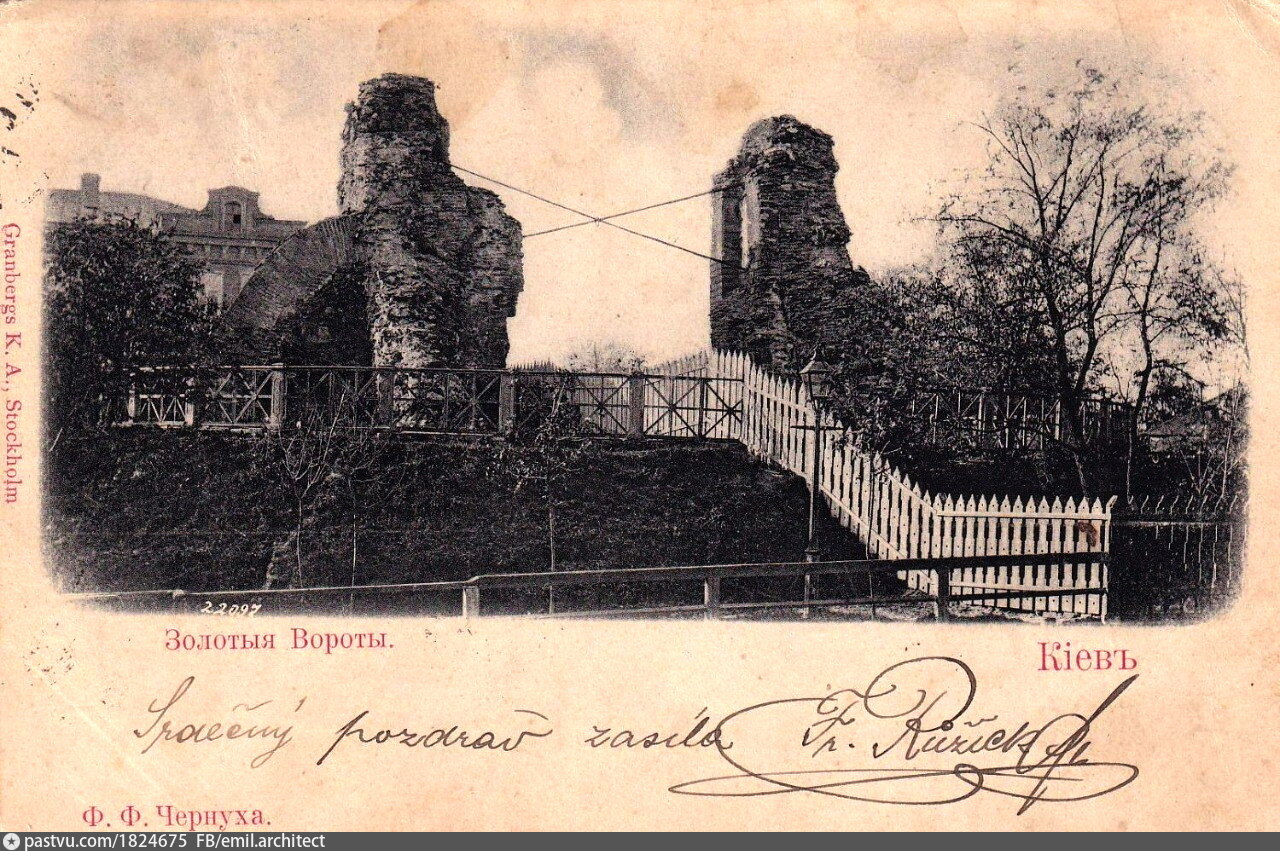 Granbergs K. A., Stockholm
22097
Золотыя Вороты.
Кіевъ
Srdečný pozdrav zasílá Fr. Růžička
Ф. Ф. Чернуха.
pastvu.com/1824675 FB/emil.architect